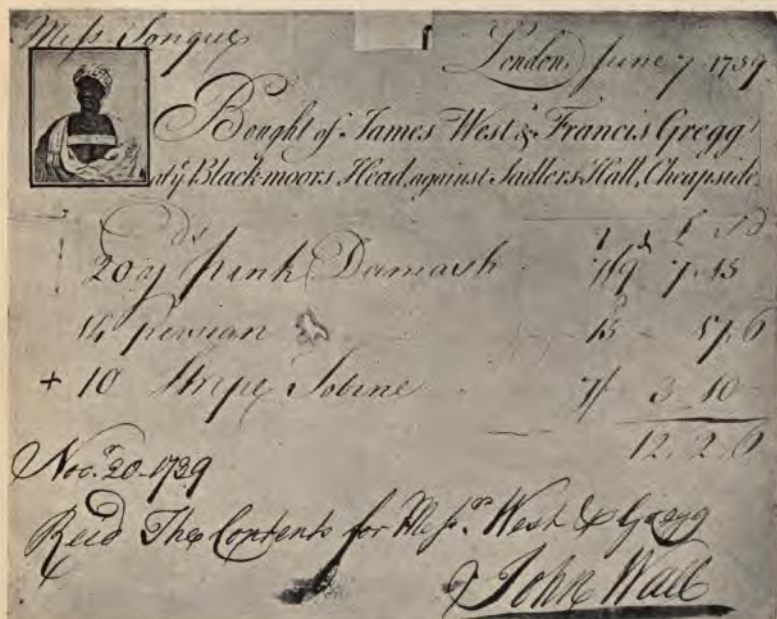 Miss Tongue
London June 7 1739
Bought of James West & Francis Gregg
at yͤ Blackmoors Head, against Sadlers Hall, Cheapside
yds s d £ s d
20 pink Damask 7/9 7. 15
14 persian 17. 6
+ 10 Stripe Tobine 7/ 3 10
12. 2. 6
Novr. 20-1739
Recd The Contents for Messrs. West & Gregg
John Wall